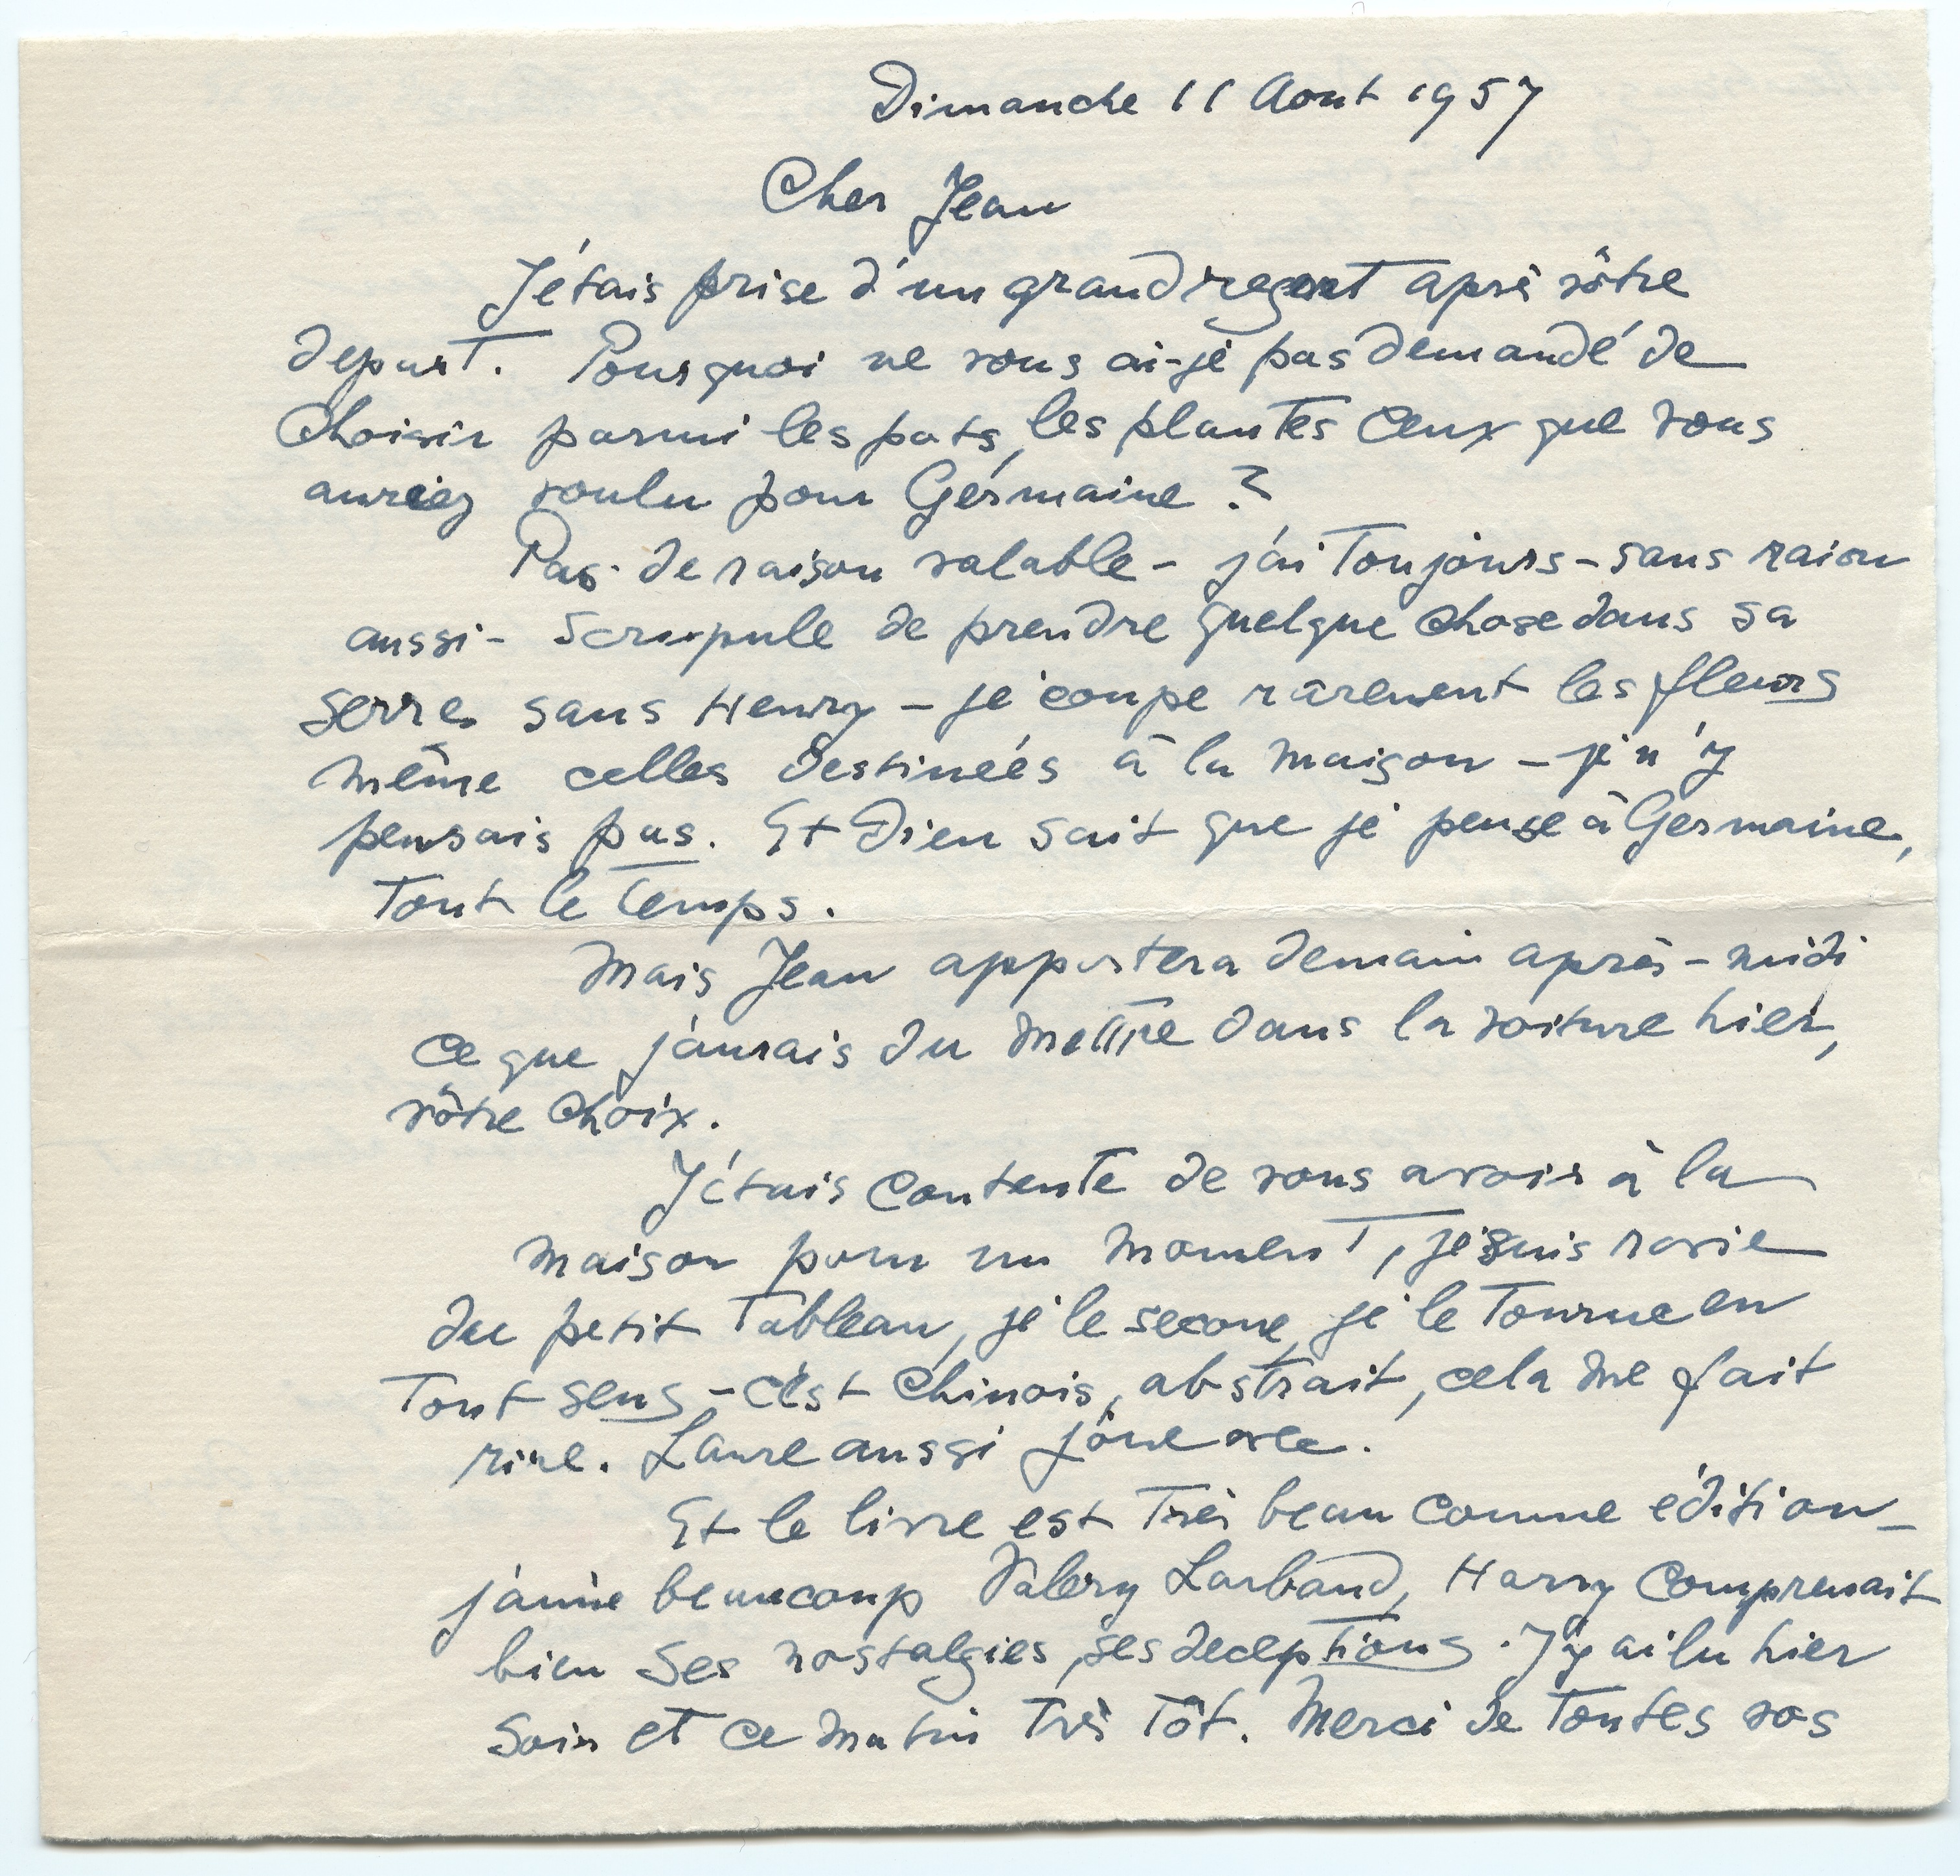 Dimanche 11 Aout 1957
Cher Jean
J'étais prise d'un grand regret après vôtre
depart. Pourquoi ne vous ai-je pas demandé de
choisir parmi les pots, les plantes ceux que vous
auriez voulu pour Germaine ?
Pas de raison valable - j'ai toujours - sans raison
aussi - scrupule de prendre quelque chose dans sa
serre sans Henry - je coupe rarement les fleurs
même celles destinées à la maison - je n'y
pensais pas. Et Dieu sait que je pense à Germaine,
tout le temps.
Mais Jean apportera demain après-midi
ce que j'aurais du mettre dans la voiture hier,
vôtre choix.
J'étais contente de vous avoir à la
maison pour un moment, je suis ravie
du petit tableau, je le secoue, je le tourne en
tout sens - c'est chinois, abstrait, cela me fait
rire. Laure aussi joue avec.
Et le livre est très beau comme édition -
j'aime beaucoup Valery Larbaud, Harry comprenait
bien ses nostalgies, ses deceptions. J'y ai lu hier
soir et ce matin très tôt. Merci de toutes vos